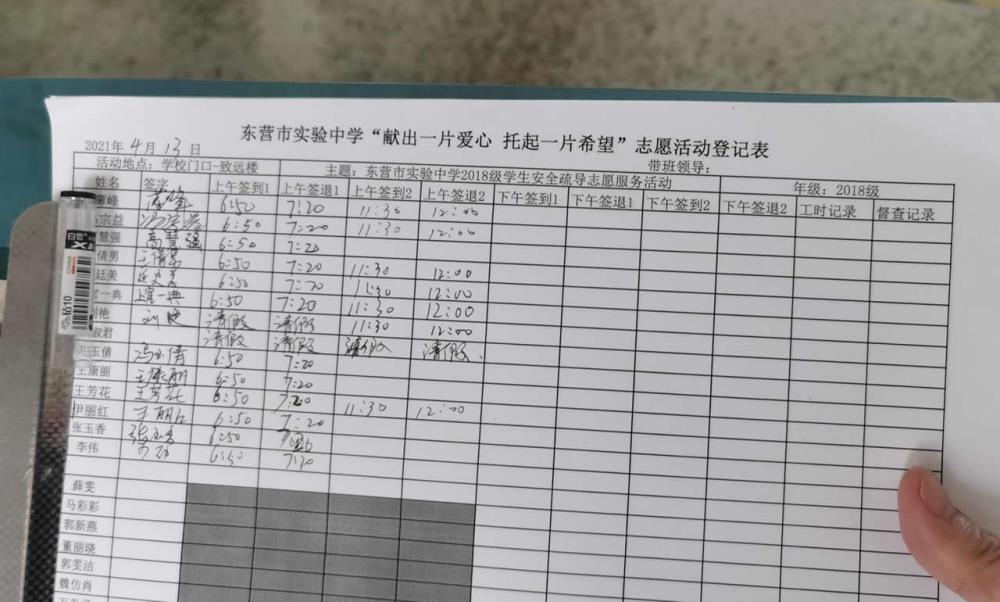 东营市实验中学“献出一片爱心 托起一片希望”志愿活动登记表
2021年 4月 13日 带班领导:
活动地点: 学校门口-致远楼 主题: 东营市实验中学2018级学生安全疏导志愿服务活动 年级: 2018级
姓名 签字 上午签到1 上午签退1 上午签到2 上午签退2 下午签到1 下午签退1 下午签到2 下午签退2 工时记录 督查记录
峰 6:50 7:20 11:30 12:00
宗益 6:50 7:20 11:30 12:00
慧强 高慧强 6:50 7:20
倩男 王倩男 6:50 7:20 11:30 12:00
廷美 6:50 7:20 11:30 12:00
一典 6:50 7:20 11:30 12:00
艳 刘艳 请假 请假 11:30 12:00
淑君 请假 请假 请假 请假
玉倩 冯玉倩 6:50 7:20
王康丽 王康丽 6:50 7:20
王芳花 王芳花 6:50 7:20
伊丽红 6:50 7:20 11:30 12:00
张玉香 张玉香 6:50
李伟 6:50 7:20
薛雯
马彩彩
郭新燕
董丽晓
郭雯洁
魏仿肖